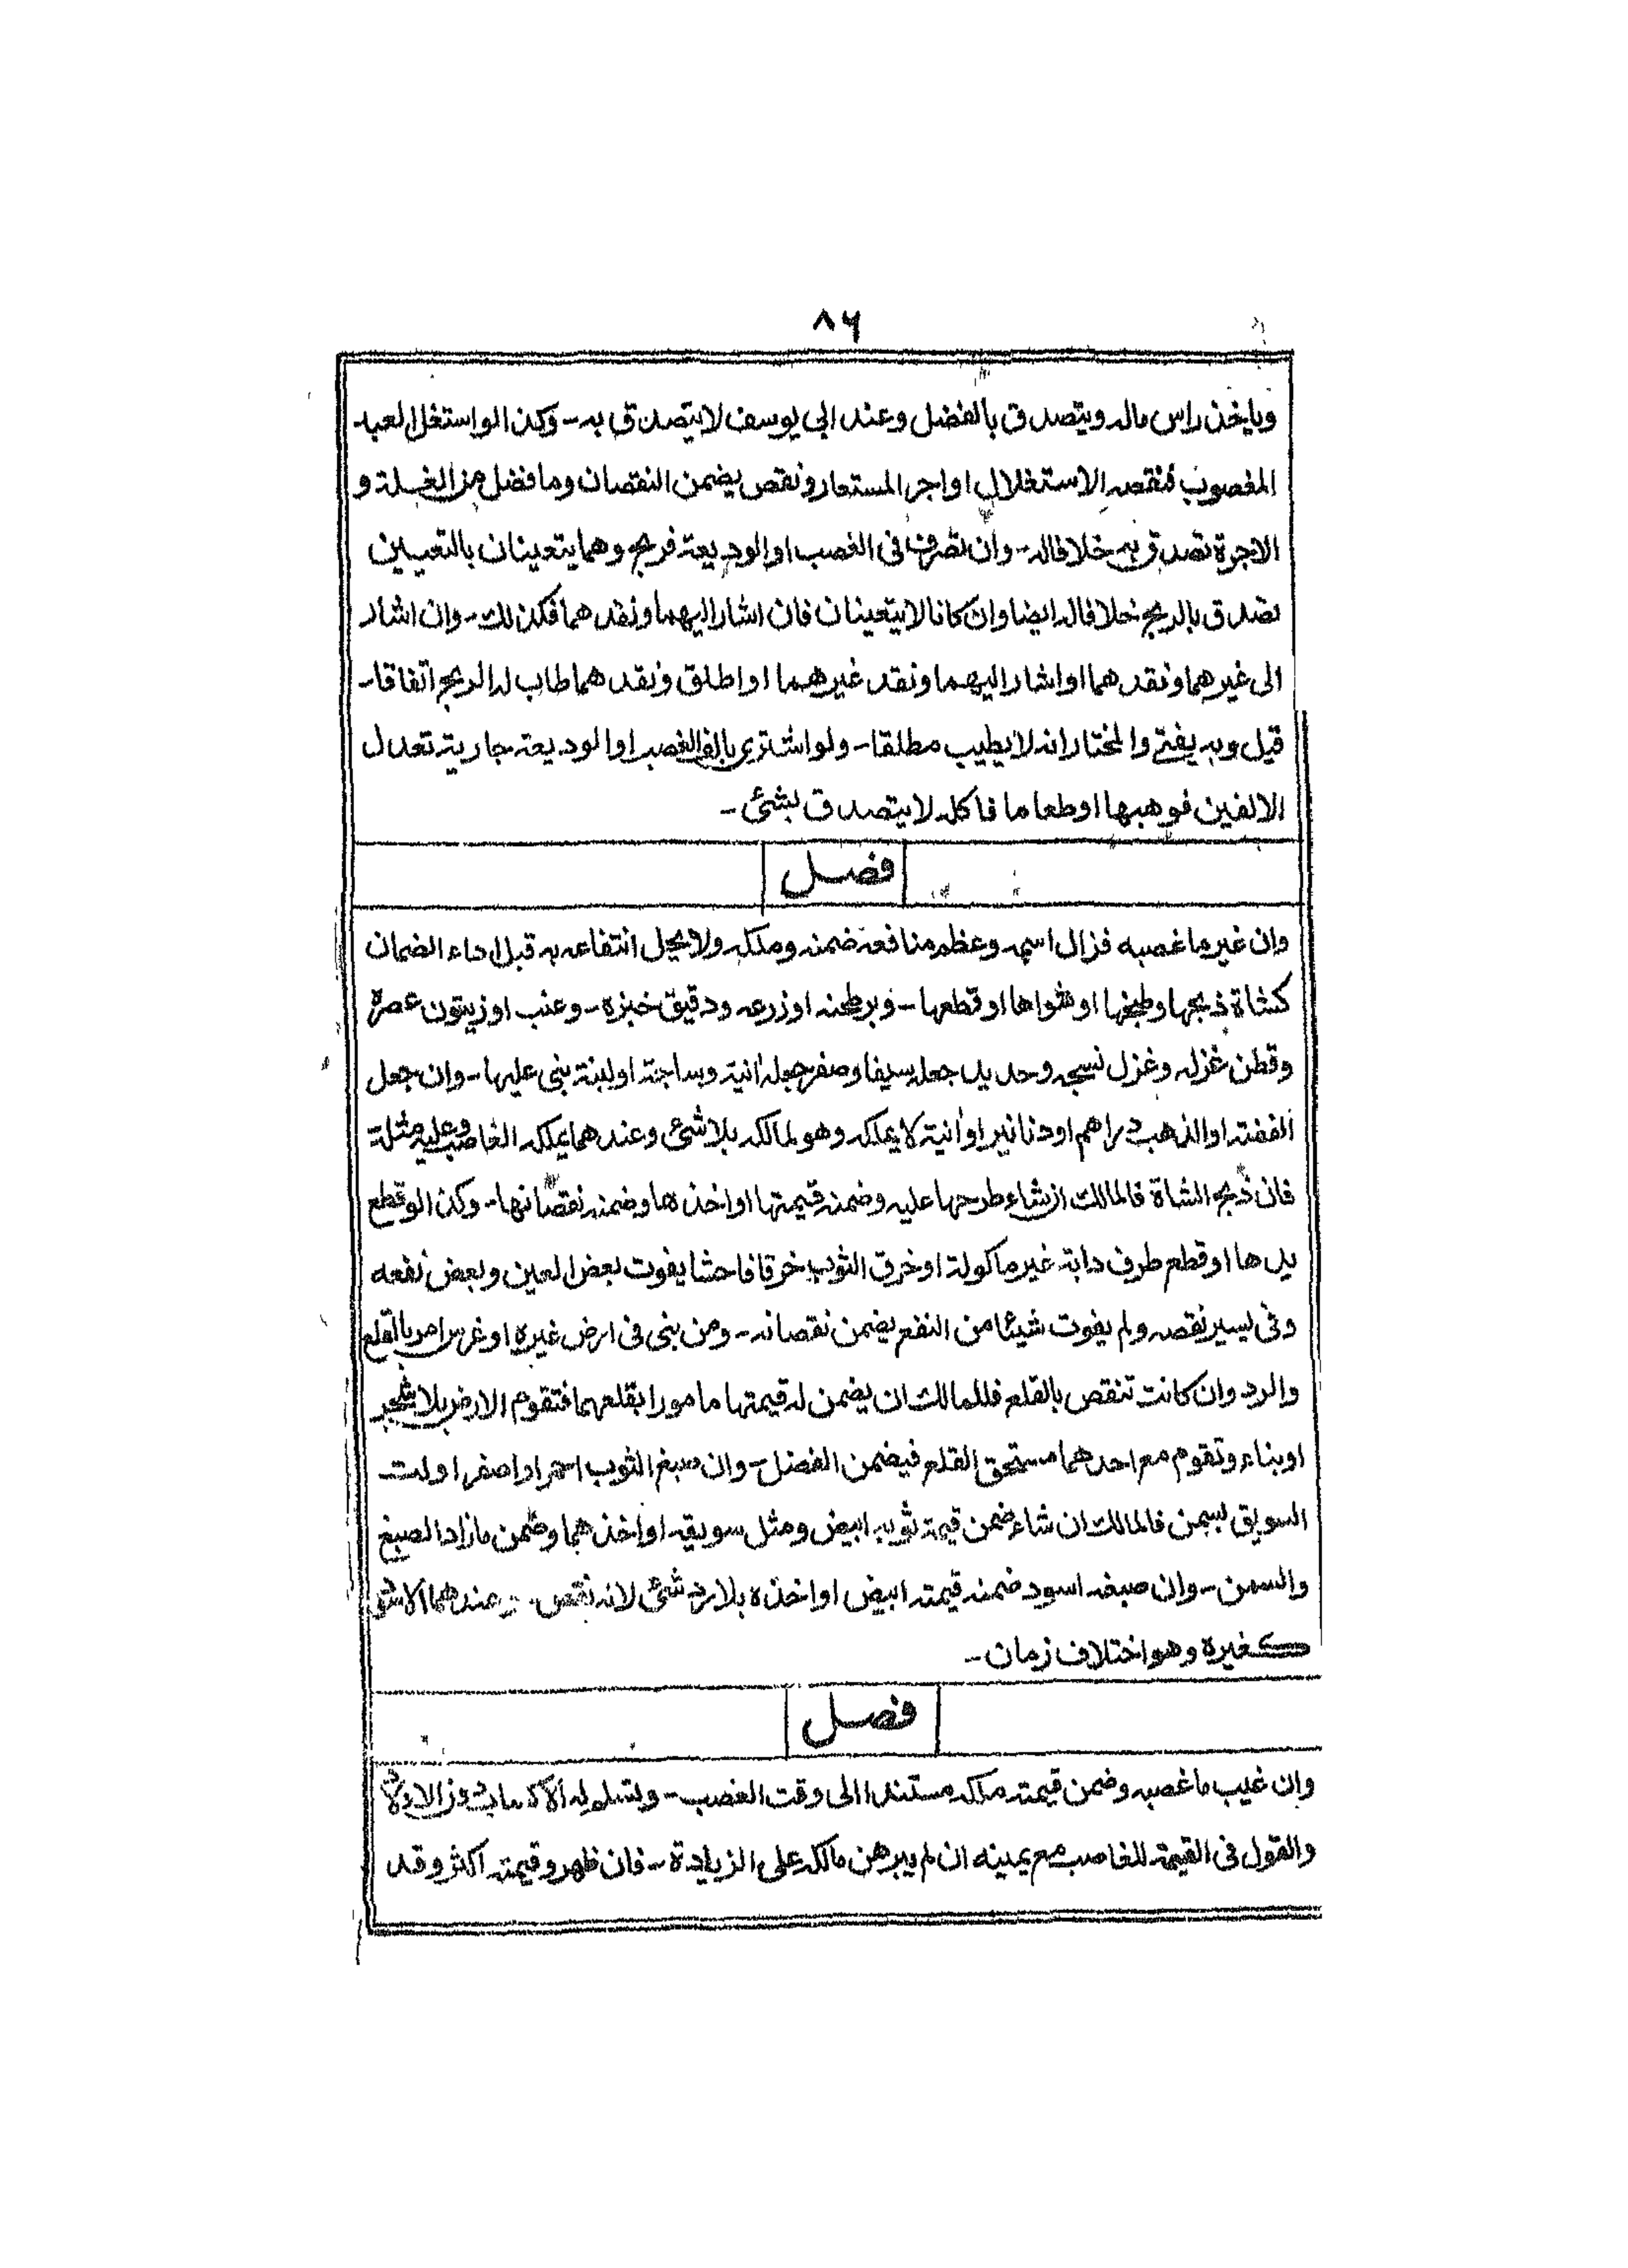 ٨٦
وياخذ راس ماله ويتصدق بالفضل وعند ابي يوسف لا يتصدق به - وكذا لو استغل العبد
المغصوب فنقصه الاستغلال او اجر المستعار ونقص يضمن النقصان وما فضل من الغلة و
الاجرة تصدق به خلافا له - وان تصرف فى الغصب او الوديعة فربح وهما يتعينان بالتعيين
تصدق بالربح خلافا له ايضا وان كانا لا يتعينان فان اشار اليهما ونقد هما فكذلك - وان اشار
الى غيرهما ونقد هما او اشار اليهما ونقد غيرهما او اطلق ونقد هما طاب له الربح اتفاقا -
قيل وبه يفتى والمختار انه لا يطيب مطلقا - ولو اشترى بالف الغصب او الوديعة جارية تعدل
الالفين فوهبها او طعاما فاكله لا يتصدق بشئ -
فصل
وان غير ما غصبه فزال اسمه وعظم منافعه ضمنه وملكه ولا يحل انتفاعه به قبل اداء الضمان
كشاة ذبحها وطبخها او شواها او قطعها - وبر طحنه او زرعه ودقيق خبزه - وعنب او زيتون عصره
وقطن غزله وغزل نسجه وحديد جعله سيفا وصفر جعله انية وساجة او لبنة بنى عليها - وان جعل
الفضة او الذهب دراهم او دنانير او انية لا يملكه وهو لمالكه بلا شئ وعندهما يملكه الغاصب وعليه مثله
فان ذبح الشاة فالمالك ان شاء طرحها عليه وضمنه قيمتها او اخذ ها وضمنه نقصانها - وكذا لو قطع
يد ها او قطع طرف دابة غير ماكولة او خرق الثوب خرقا فاحشا يفوت بعض العين وبعض نفعه
وفى يسير نقصه ولم يفوت شيئا من النفع يضمن نقصانه - ومن بنى فى ارض غيره او غرس امر بالقلع
والرد وان كانت تنقص بالقلع فللمالك ان يضمن له قيمتها مامورا بقلعهما فتقوم الارض بلا شجر
او بناء وتقوم مع احدهما مستحق القلع فيضمن الفضل - وان صبغ الثوب احمر او اصفر او لت
السويق بسمن فالمالك ان شاء ضمن قيمة ثوبه ابيض ومثل سويقه او اخذ هما وضمن ما زاد الصبغ
والسمن - وان صبغه اسود ضمنه قيمته ابيض او اخذه بلا رد شئ لانه نقص - وعندهما الاسود
كغيره وهو اختلاف زمان -
فصل
وان غيب ما غصبه وضمن قيمته ملكه مستندا الى وقت الغصب - وتسلم له الاكساب دون الاولاد
والقول فى القيمة للغاصب مع يمينه ان لم يبرهن مالكه على الزيادة - فان ظهر وقيمته اكثر وقد